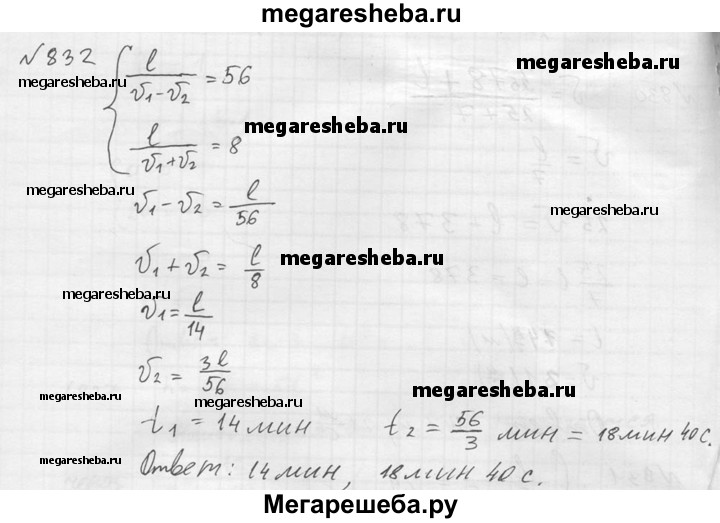 megaresheba.ru
№832
{ l / (v₁ - v₂) = 56
megaresheba.ru megaresheba.ru
megaresheba.ru
l / (v₁ + v₂) = 8
megaresheba.ru
v₁ - v₂ = l / 56
megaresheba.ru
v₁ + v₂ = l / 8
megaresheba.ru
megaresheba.ru
v₁ = l / 14
v₂ = 3l / 56
megaresheba.ru megaresheba.ru megaresheba.ru
t₁ = 14 мин t₂ = 56/3 мин = 18 мин 40 с.
megaresheba.ru
Ответ: 14 мин, 18 мин 40 с.
Мегарешеба.ру